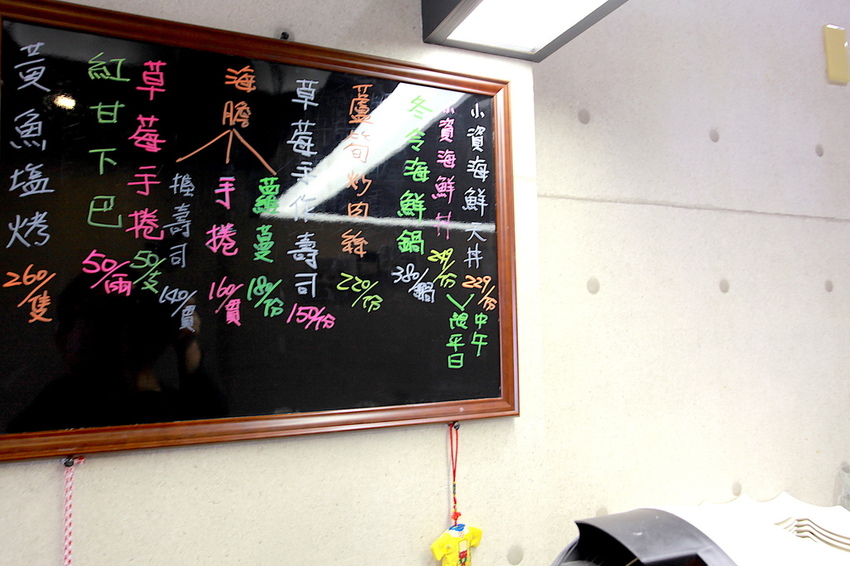 小資海鮮天丼 229/份
小資海鮮丼 249/份
中午
限平日
冬令海鮮鍋 380/鍋
蘆筍炒肉絲 220/份
草莓手作壽司 150/份
海膽
蘿蔓 180/份
手捲 160/貫
握壽司 140/貫
草莓手捲 50/支
紅甘下巴 50/兩
黃魚塩烤 260/隻